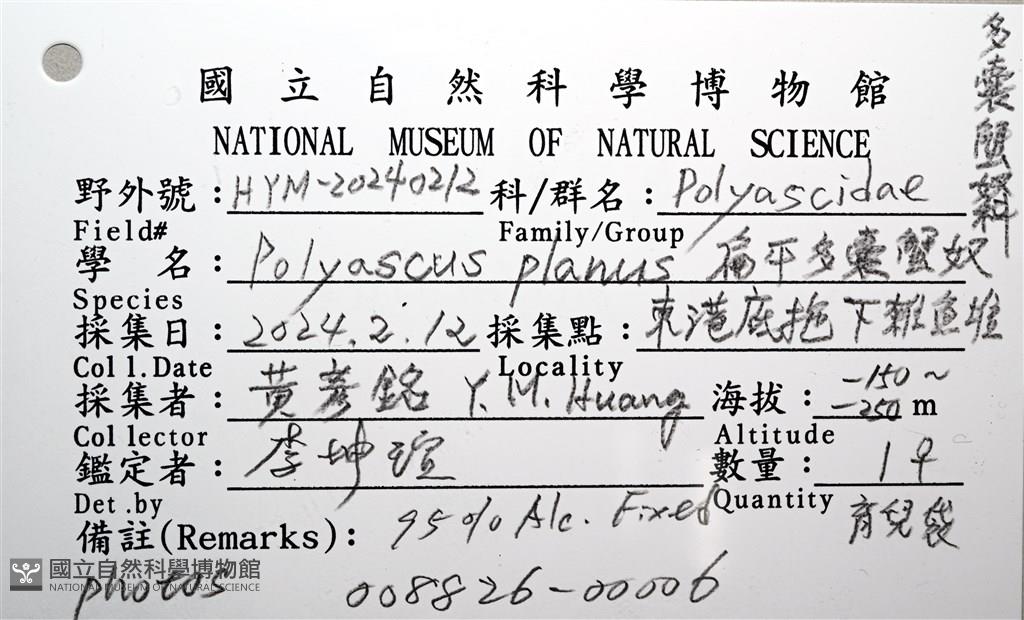 多囊蟹奴科
國立自然科學博物館
NATIONAL MUSEUM OF NATURAL SCIENCE
野外號：HYM-20240212 科/群名：Polyascidae
Field# Family/Group
學 名：Polyascus planus 扁平多囊蟹奴
Species
採集日：2024.2.12 採集點：東港底拖下雜魚堆
Coll.Date Locality
採集者：黃彥銘 Y.M.Huang 海拔：-150～-250 m
Collector Altitude
鑑定者：李坤瑄 數量：1♀
Det.by Quantity 育兒袋
備註(Remarks)： 95% Alc. Fixed
photos 008826-00006
國立自然科學博物館
NATIONAL MUSEUM OF NATURAL SCIENCE